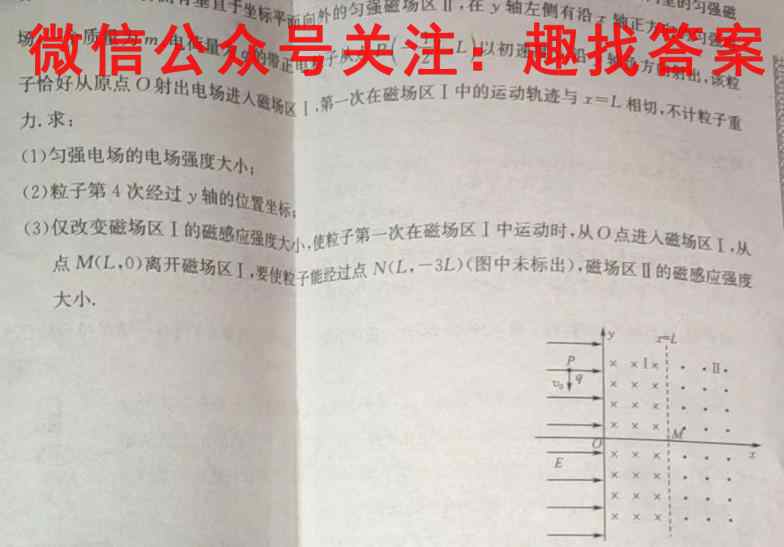 垂直于坐标平面向外的匀强磁场区Ⅱ,在 y 轴左侧有沿 x 轴正方向的匀强
微信公众号关注：趣找答案
子恰好从原点 O 射出电场进入磁场区Ⅰ,第一次在磁场区Ⅰ中的运动轨迹与 x=L 相切,不计粒子重
力.求:
(1)匀强电场的电场强度大小;
(2)粒子第 4 次经过 y 轴的位置坐标;
(3)仅改变磁场区Ⅰ的磁感应强度大小,使粒子第一次在磁场区Ⅰ中运动时,从O点进入磁场区Ⅰ,从
点 M(L,0)离开磁场区Ⅰ,要使粒子能经过点 N(L,-3L)(图中未标出),磁场区Ⅱ的磁感应强度
大小.
y
x=L
P
Ⅰ
Ⅱ
v₀
q
O
M
x
E